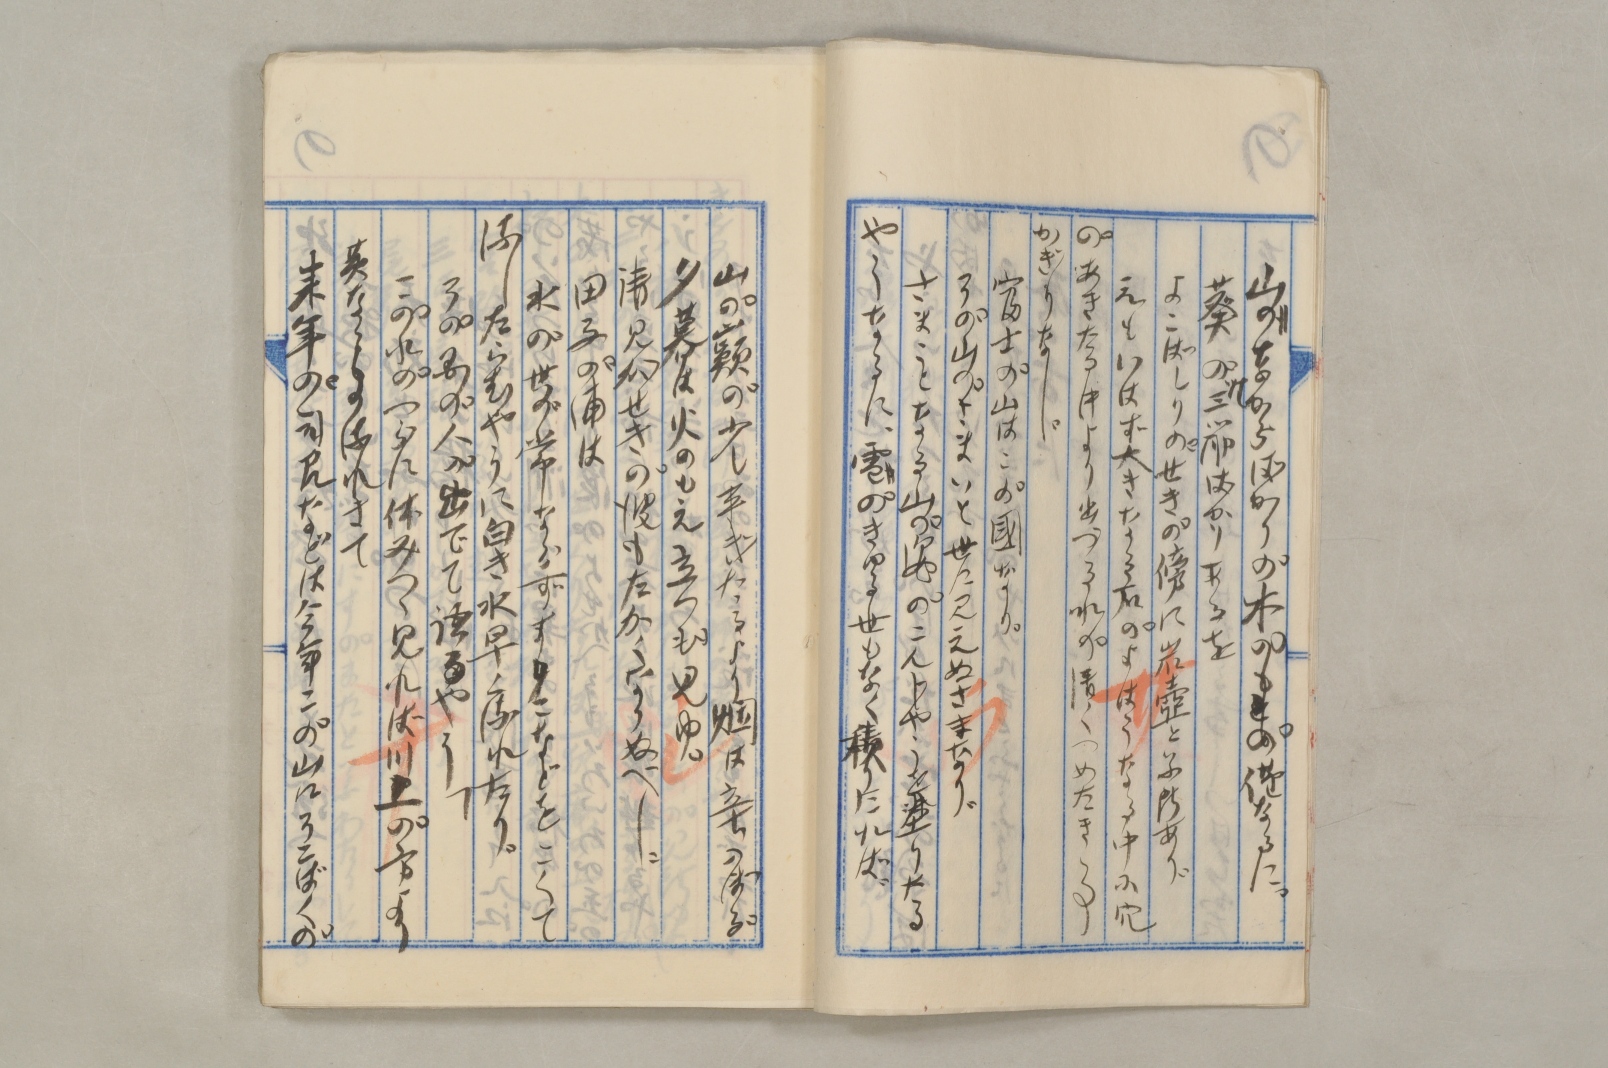 山のなからばかりの木のもとの僅なるに
葵の三筋ばかりあるを
よこばしりのせきの傍に岩壺と云所あり
えもいはず大きなる石のよはうなる中に穴
のあきたる中より出づる水の清くつめたきこと
かぎりなし
富士の山はこの國なり。
その山のさまいと世に見えぬさまなり
さまことなる山の姿のこんじやうを塗りたる
やうなるに、雪のきゆる世もなく積りたれば
山の巓の少し平ぎたるより烟は立のぼる。
夕暮は火のもえ立つも見ゆ。
清見がせきの波もたかくなりぬべし
田子の浦は
水の世の常ならずすりこなどをこくて
ながしたらむやうに白き水早く流れたり。
その國の人の出でて語るやう
この水のつらに休みつつ見れば川上の方より
黄なるもの流れきて
来年の司召などは今年この山にそこばくの